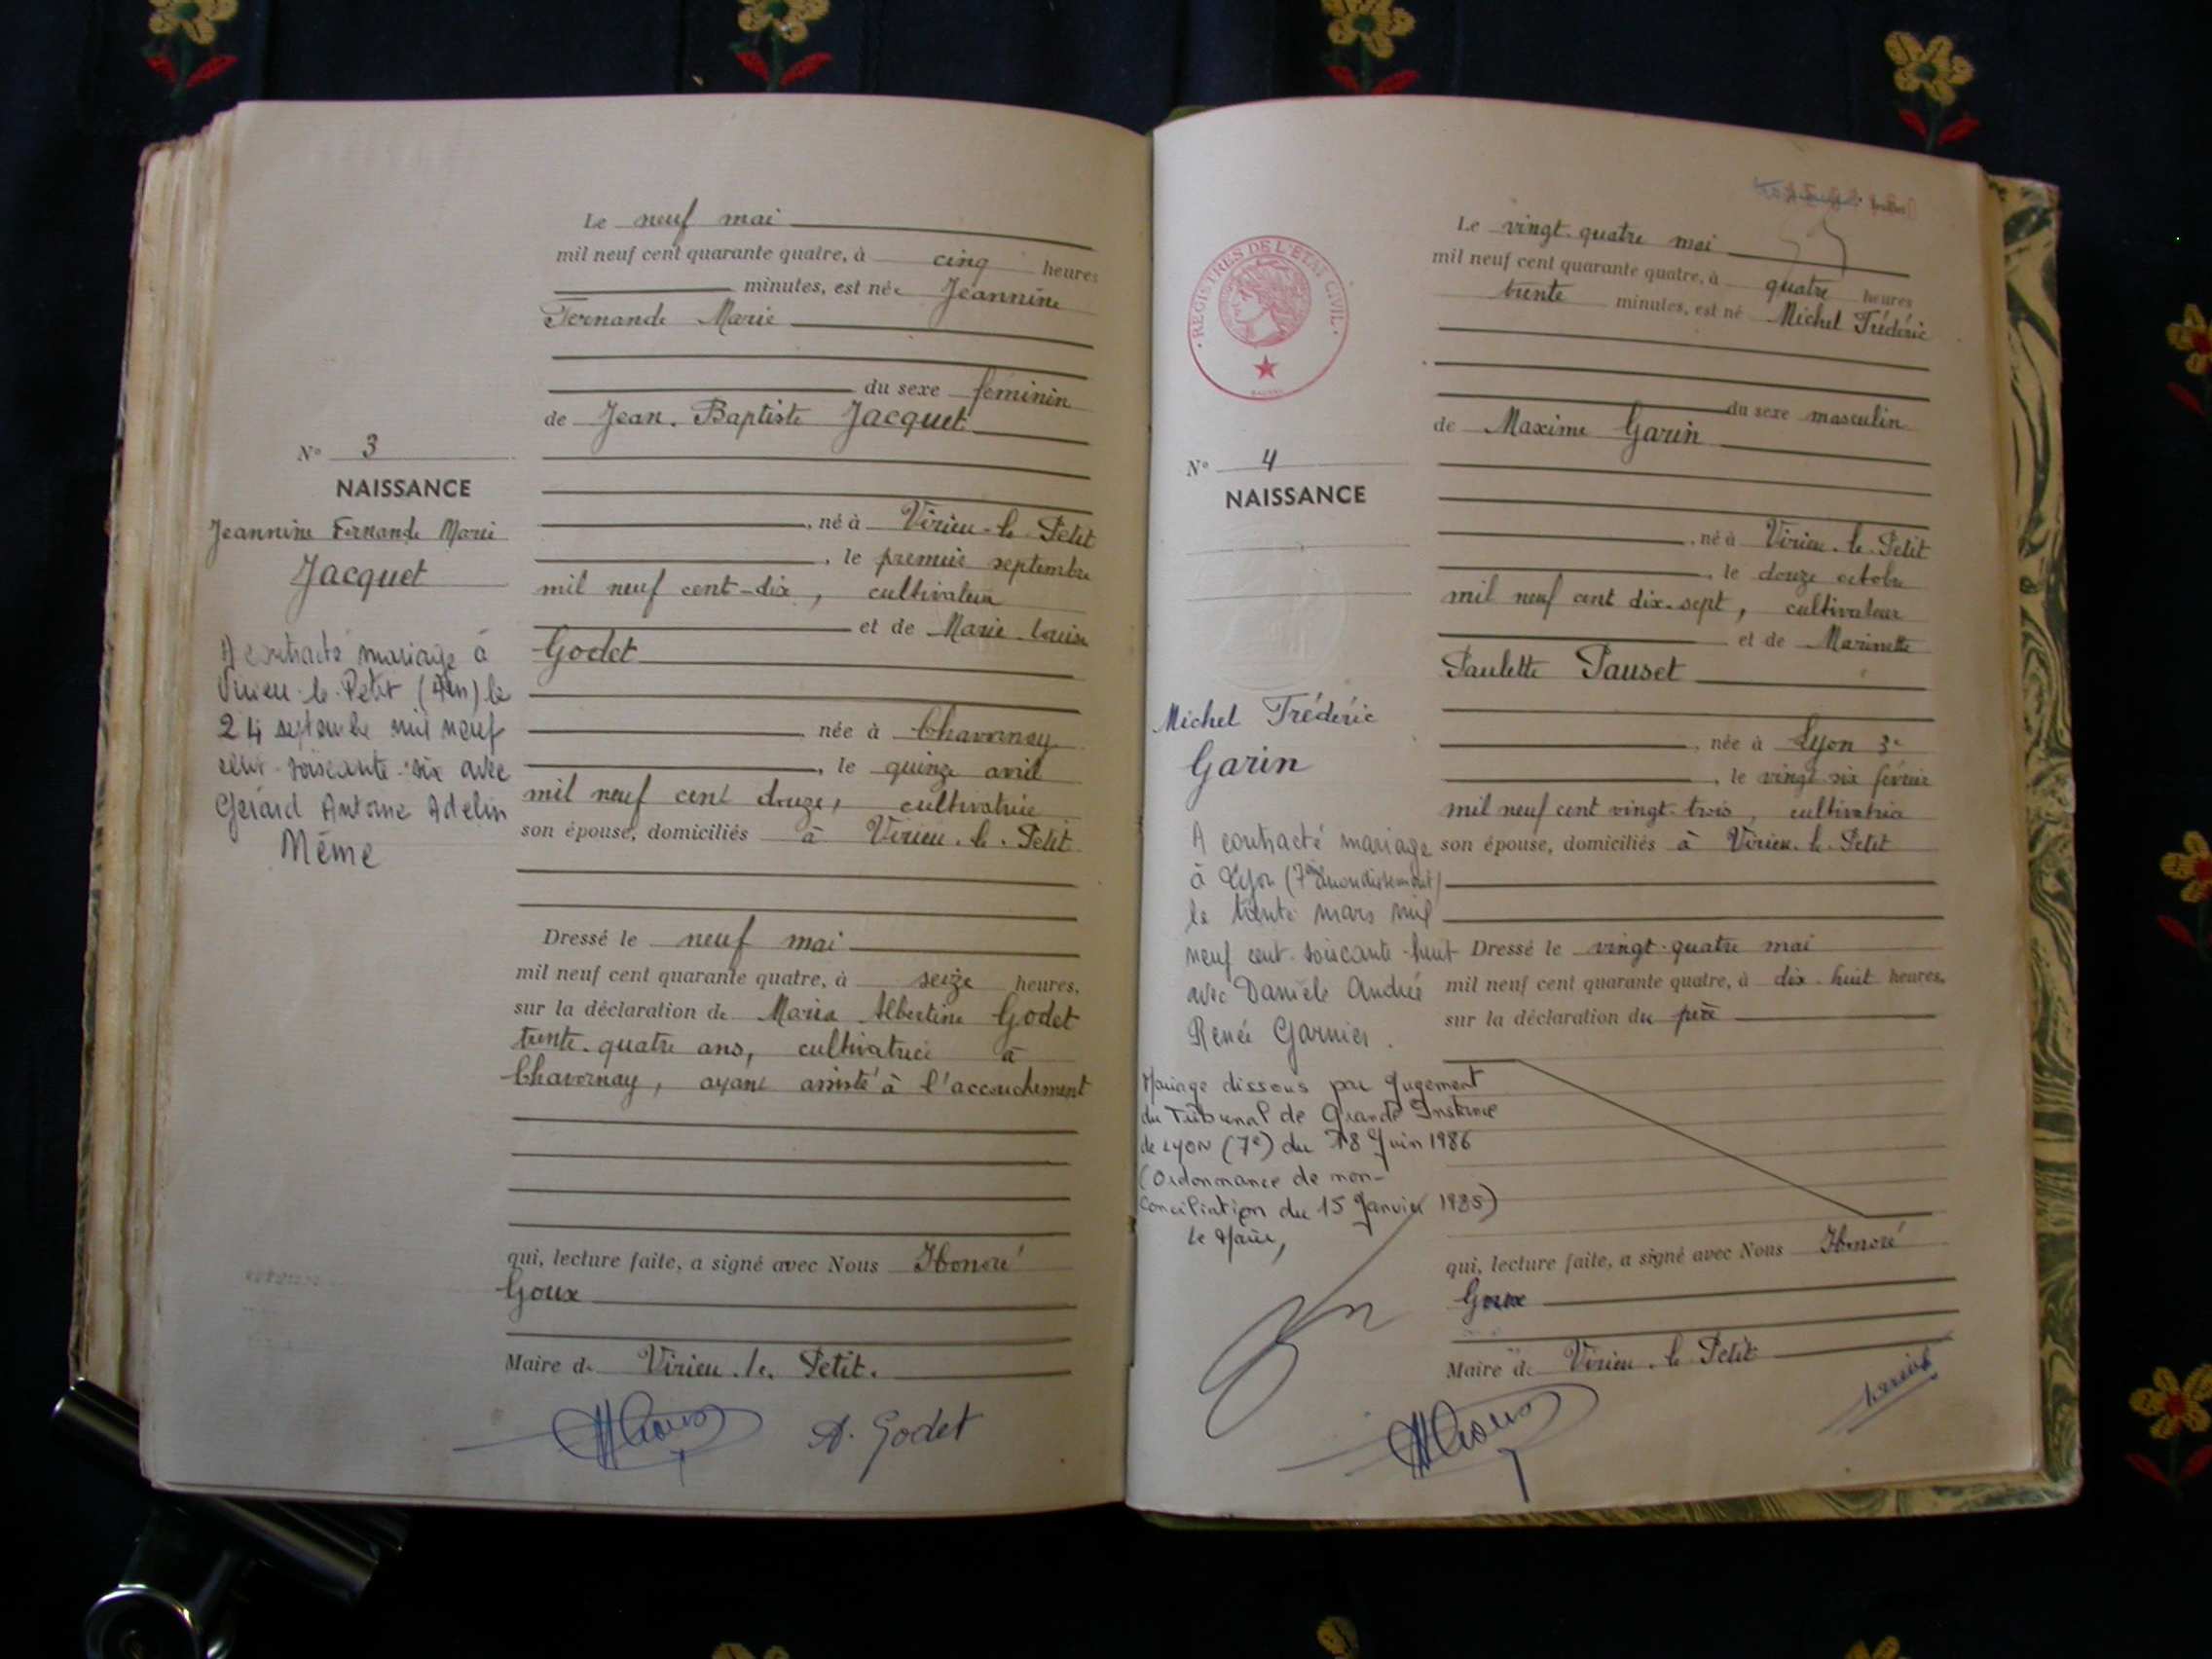 Le neuf mai
mil neuf cent quarante quatre, à cinq heures
minutes, est née Jeannine
Fernande Marie
du sexe féminin
de Jean-Baptiste Jacquet
né à Virieu-le-Petit
, le premier septembre
mil neuf cent-dix, cultivateur
et de Marie-Louise
Godet
née à Chavornay
, le quinze avril
mil neuf cent douze, cultivatrice
son épouse, domiciliés à Virieu-le-Petit
Dressé le neuf mai
mil neuf cent quarante quatre, à seize heures,
sur la déclaration de Maria Albertine Godet
trente-quatre ans, cultivatrice à
Chavornay, ayant assisté à l'accouchement
qui, lecture faite, a signé avec Nous Honoré
Goux
Maire de Virieu-le-Petit.
A. Godet
N° 3
NAISSANCE
Jeannine Fernande Marie
Jacquet
A contracté mariage à
Virieu-le-Petit (Ain) le
24 septembre mil neuf
cent-soixante-six avec
Gérard Antoine Adelin
Même
Le vingt-quatre mai
mil neuf cent quarante quatre, à quatre heures
trente minutes, est né Michel Frédéric
du sexe masculin
de Maxime Garin
, né à Virieu-le-Petit
, le douze octobre
mil neuf cent dix-sept, cultivateur
et de Marinette
Paulette Pauset
, née à Lyon 3e
, le vingt-six février
mil neuf cent vingt-trois, cultivatrice
son épouse, domiciliés à Virieu-le-Petit
Dressé le vingt-quatre mai
mil neuf cent quarante quatre, à dix-huit heures,
sur la déclaration du père
qui, lecture faite, a signé avec Nous Honoré
Goux
Maire de Virieu-le-Petit
REGISTRES DE L'ETAT CIVIL
N° 4
NAISSANCE
Michel Frédéric
Garin
A contracté mariage
à Lyon (7ème arrondissement)
le trente mars mil
neuf cent-soixante-huit
avec Danièle Andrée
Renée Garnier.
Mariage dissous par Jugement
du Tribunal de Grande Instance
de Lyon (7e) du 18 Juin 1986
(Ordonnance de non-
Conciliation du 15 Janvier 1985)
le Maire,